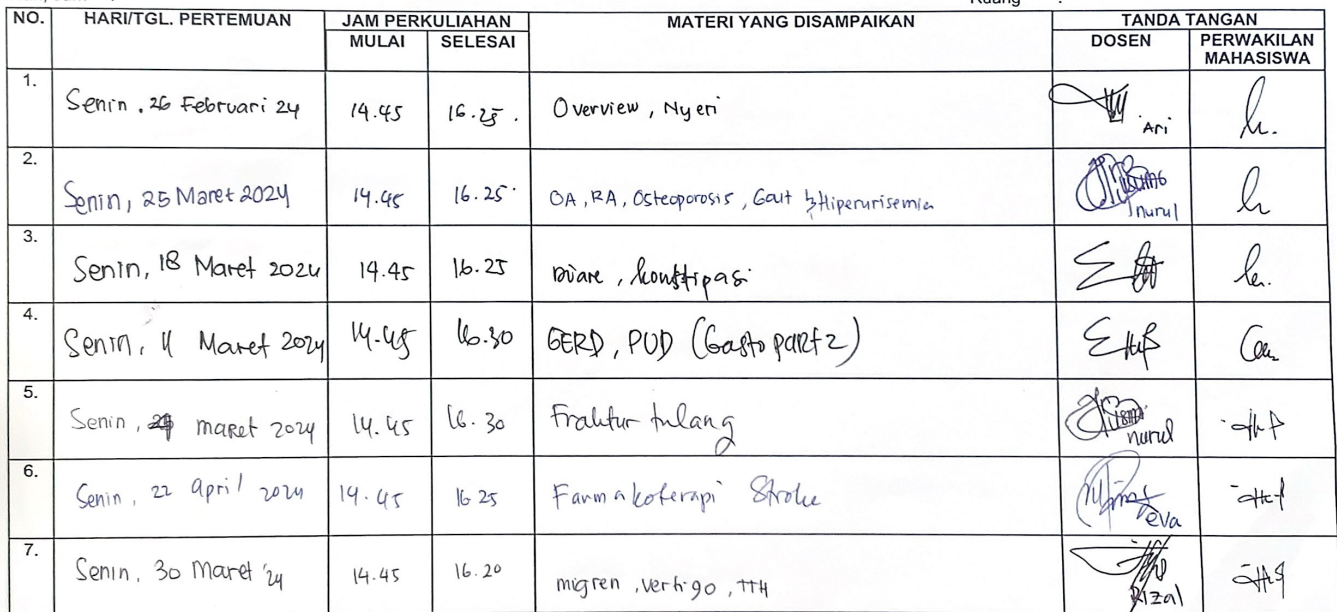 Ruang :
NO. HARI/TGL. PERTEMUAN JAM PERKULIAHAN MATERI YANG DISAMPAIKAN TANDA TANGAN
MULAI SELESAI DOSEN PERWAKILAN MAHASISWA
1. Senin, 26 Februari 24 14.45 16.25. Overview, Nyeri Ari
2. Senin, 25 Maret 2024 14.45 16.25 OA, RA, Osteoporosis, Gout & Hiperurisemia nurul
3. Senin, 18 Maret 2024 14.45 16.25 Diare, konstipasi
4. Senin, 4 Maret 2024 14.45 16.30 GERD, PUD (Gasto part 2)
5. Senin, maret 2024 14.45 16.30 Fraktur tulang nurul
6. Senin, 22 april 2024 14.45 16 25 Farmakoterapi Stroke eva
7. Senin, 30 Maret '24 14.45 16.20 migren, vertigo, TTH Rizal